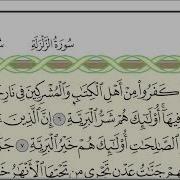 سُورَةُ الزَّلْزَلَةِ
كَفَرُوا۟ مِنْ أَهْلِ ٱلْكِتَـٰبِ وَٱلْمُشْرِكِينَ فِى نَارِ
فِيهَآ أُو۟لَـٰٓئِكَ هُمْ شَرُّ ٱلْبَرِيَّةِ ٦ إِنَّ ٱلَّذِينَ
ٱلصَّـٰلِحَـٰتِ أُو۟لَـٰٓئِكَ هُمْ خَيْرُ ٱلْبَرِيَّةِ ٧
جَنَّـٰتُ عَدْنٍ تَجْرِى مِن تَحْتِهَا ٱلْأَنْهَـٰرُ